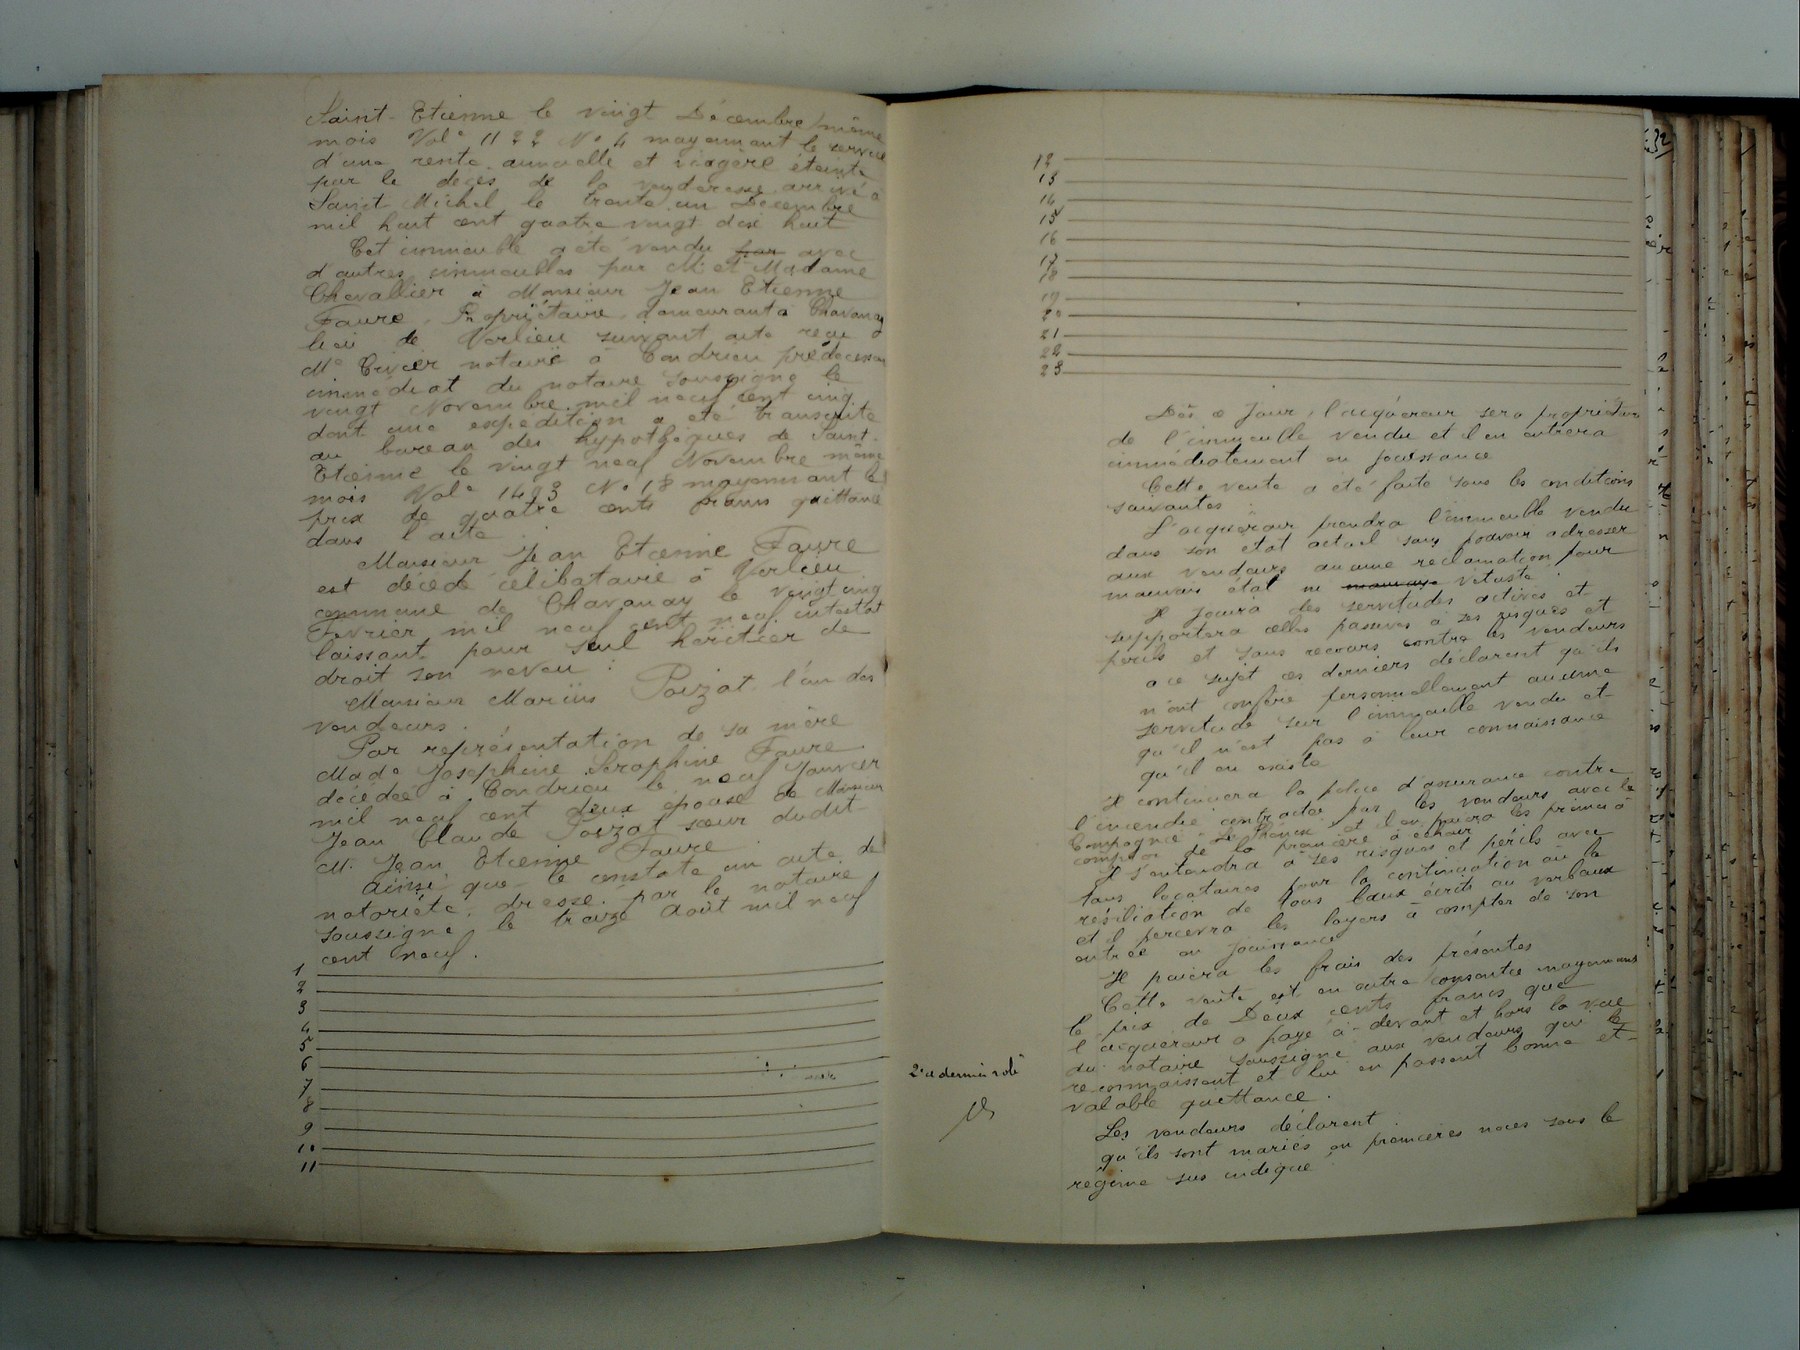 Saint-Etienne le vingt Décembre même
mois Vol° 1122 N° 4 moyennant le service
d'une rente annuelle et viagère éteinte
par le décès de la venderesse arrivé à
Saint Michel le trente un Décembre
mil huit cent quatre vingt dix huit
Cet immeuble a été vendu par avec
d'autres immeubles par M. et Madame
Chevallier à Monsieur Jean Etienne
Faure, Propriétaire, demeurant à Chavanay
lieu de Verlieu suivant acte reçu
Me notaire à Condrieu prédécesseur
immédiat du notaire soussigné le
vingt Novembre mil neuf cent cinq
dont une expédition a été transcrite
au bureau des hypothèques de Saint-
Etienne le vingt neuf Novembre même
mois Vol° 1493 N° 18 moyennant le
prix de quatre cents francs quittancé
dans l'acte.
Monsieur Jean Etienne Faure
est décédé célibataire à Verlieu
commune de Chavanay le vingt cinq
Février mil neuf cent neuf intestat
laissant pour seul héritier de
droit son neveu :
Monsieur Marius Poizat l'un des
vendeurs.
Par représentation de sa mère
Made Joséphine Séraphine Faure
décédée à Condrieu le neuf Janvier
mil neuf cent deux épouse de Monsieur
Jean Claude Poizat sœur dudit
M. Jean Etienne Faure.
Ainsi que le constate un acte de
notoriété, dressé par le notaire
soussigné le treize Août mil neuf
cent neuf.
1
2
3
4
5
6
7
8
9
10
11
12
13
14
15
16
17
18
19
20
21
22
23
Dès ce jour, l'acquéreur sera propriétaire
de l'immeuble vendu et il en entrera
immédiatement en jouissance
Cette vente a été faite sous les conditions
suivantes :
L'acquéreur prendra l'immeuble vendu
dans son état actuel sans pouvoir adresser
aux vendeurs aucune réclamation pour
mauvais état ni mauvaise vétusté.
Il jouira des servitudes actives et
supportera celles passives à ses risques et
périls et sans recours contre les vendeurs
à ce sujet ces derniers déclarent qu'ils
n'ont conféré personnellement aucune
servitude sur l'immeuble vendu et
qu'il n'est pas à leur connaissance
qu'il en existe
Il continuera la police d'assurance contre
l'incendie contractée par les vendeurs avec la
Compagnie "Le Phénix" et il en paiera les primes à
compter de la première à échoir
Il s'entendra à ses risques et périls avec
tous locataires pour la continuation ou la
résiliation de tous baux écrits ou verbaux
et il percevra les loyers à compter de son
entrée en jouissance
Il paiera les frais des présentes
Cette vente est en outre consentie moyennant
le prix de Deux cents francs que
l'acquéreur a payé ci-devant et hors la vue
du notaire soussigné aux vendeurs qui le
reconnaissent et lui en passent bonne et
valable quittance.
Les vendeurs déclarent
qu'ils sont mariés en premières noces sous le
régime sus indiqué
2e et dernier rôle